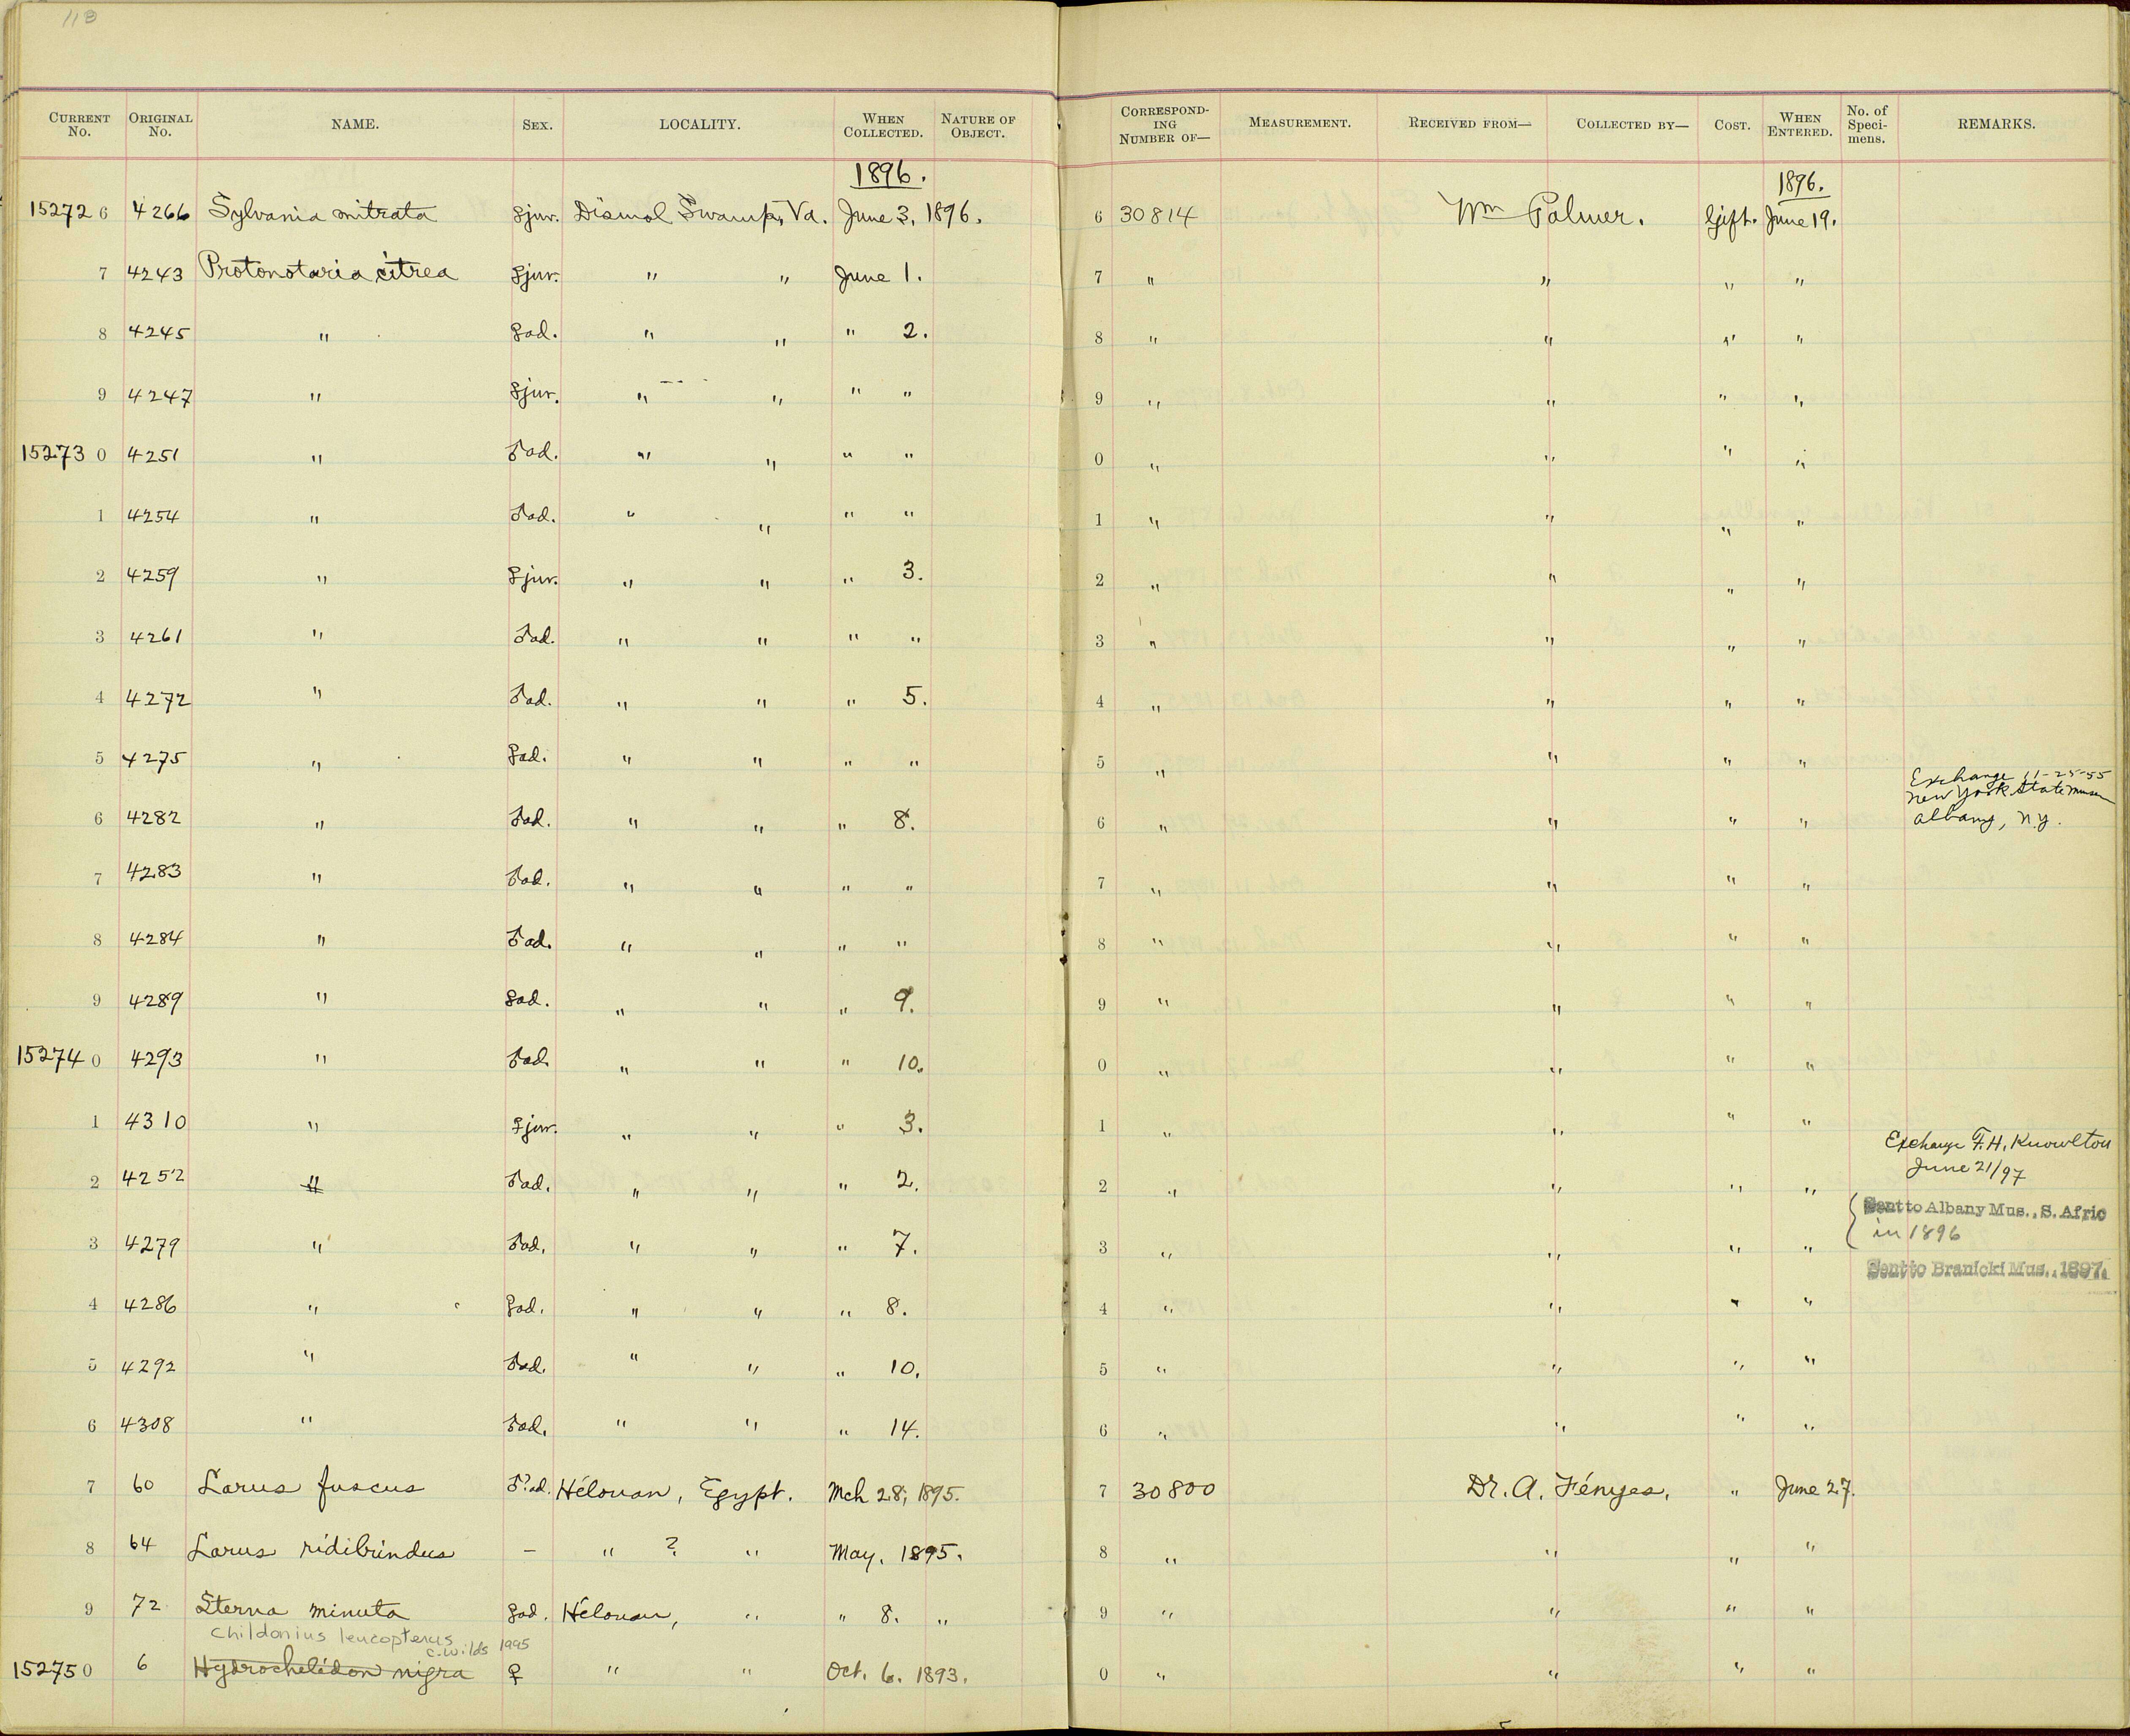 113
CURRENT No. ORIGINAL No. NAME. SEX. LOCALITY. WHEN COLLECTED. NATURE OF OBJECT. CORRESPONDING NUMBER OF— MEASUREMENT. RECEIVED FROM— COLLECTED BY— COST. WHEN ENTERED. No. of Specimens. REMARKS.
1896. 1896.
15272 6 4266 Sylvania mitrata ♀juv. Dismal Swamp, Va. June 3, 1896. 6 30814 Wm Palmer. Gift. June 19.
7 4243 Protonotaria citrea ♀juv. " " June 1. 7 " " " "
8 4245 " ♀ad. " " " 2. 8 " " " "
9 4247 " ♀juv. " " " " 9 " " " "
15273 0 4251 " ♂ad. " " " " 0 " " " "
1 4254 " ♂ad. " " " " 1 " " " "
2 4259 " ♀juv. " " " 3. 2 " " " "
3 4261 " ♂ad. " " " " 3 " " " "
4 4272 " ♂ad. " " " 5. 4 " " " "
5 4275 " ♀ad. " " " " 5 " " " "
Exchange 11-25-55
New York State Museum
6 4282 " ♂ad. " " " 8. 6 " " " " Albany, N.Y.
7 4283 " ♂ad. " " " " 7 " " " "
8 4284 " ♂ad. " " " " 8 " " " "
9 4289 " ♀ad. " " " 9. 9 " " " "
15274 0 4293 " ♂ad. " " " 10. 0 " " " "
1 4310 " ♀juv. " " " 3. 1 " " " "
Exchange F.H. Knowlton
June 21/97
2 4252 " ♂ad. " " " 2. 2 " " " "
Sent to Albany Mus., S. Afric
in 1896
3 4279 " ♂ad. " " " 7. 3 " " " "
Sent to Branicki Mus., 1897.
4 4286 " ♀ad. " " " 8. 4 " " " "
5 4292 " ♂ad. " " " 10. 5 " " " "
6 4308 " ♂ad. " " " 14. 6 " " " "
7 60 Larus fuscus ♂?ad. Hélouan, Egypt. Mch 28, 1895. 7 30800 Dr. A. Fényes. " June 27.
8 64 Larus ridibundus – " ? " May, 1895. 8 " " " "
9 72 Sterna minuta ♀ad. Hélouan, " " 8. " 9 " " " "
Childonius leucopterus
C. Wilds 1995
15275 0 6 Hydrochelidon nigra ♀ " " Oct. 6. 1893. 0 " " " "